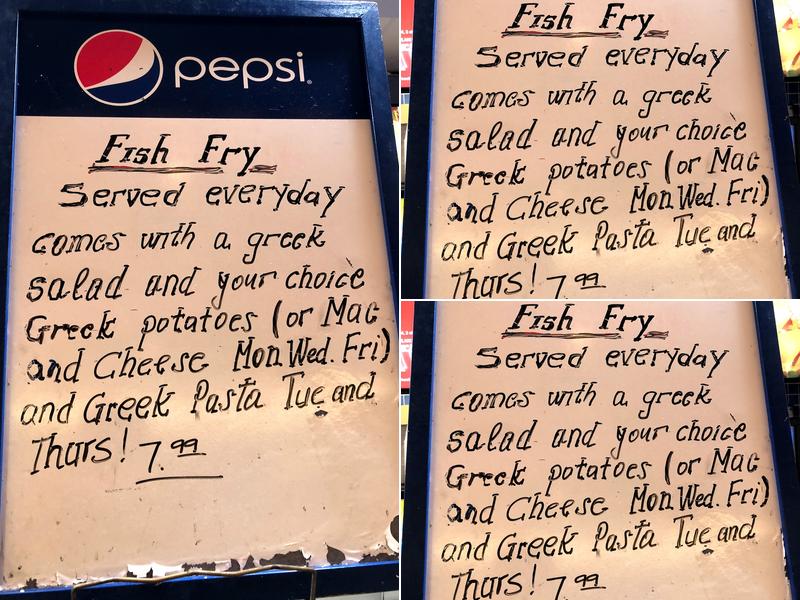 pepsi
Fish Fry
Served everyday
comes with a greek
salad and your choice
Greek potatoes (or Mac
and Cheese Mon.Wed. Fri)
and Greek Pasta Tue and
Thurs! 7.99
Fish Fry
Served everyday
comes with a greek
salad and your choice
Greek potatoes (or Mac
and Cheese Mon.Wed. Fri)
and Greek Pasta Tue and
Thurs! 7.99
Fish Fry
Served everyday
comes with a greek
salad and your choice
Greek potatoes (or Mac
and Cheese Mon.Wed. Fri)
and Greek Pasta Tue and
Thurs! 7.99